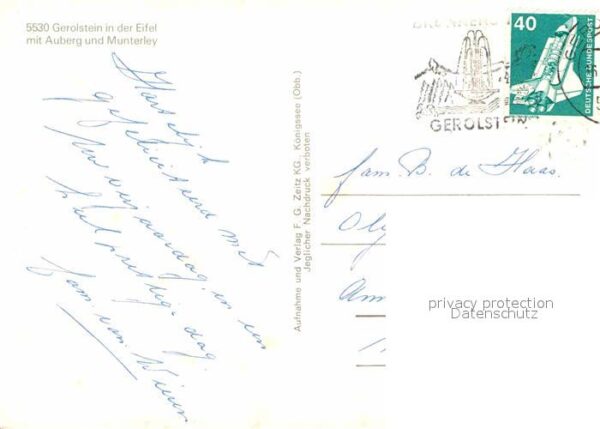 5530 Gerolstein in der Eifel
mit Auberg und Munterley
Hartelijk
gefeliciteerd met
verjaardag en een
prettige dag.
fam. van
Aufnahme und Verlag F. G. Zeitz KG., Königssee (Obb.)
Jeglicher Nachdruck verboten
GEROLST
40
DEUTSCHE BUNDESPOST
fam. B. de Haas.
Oly
Am
privacy protection
Datenschutz